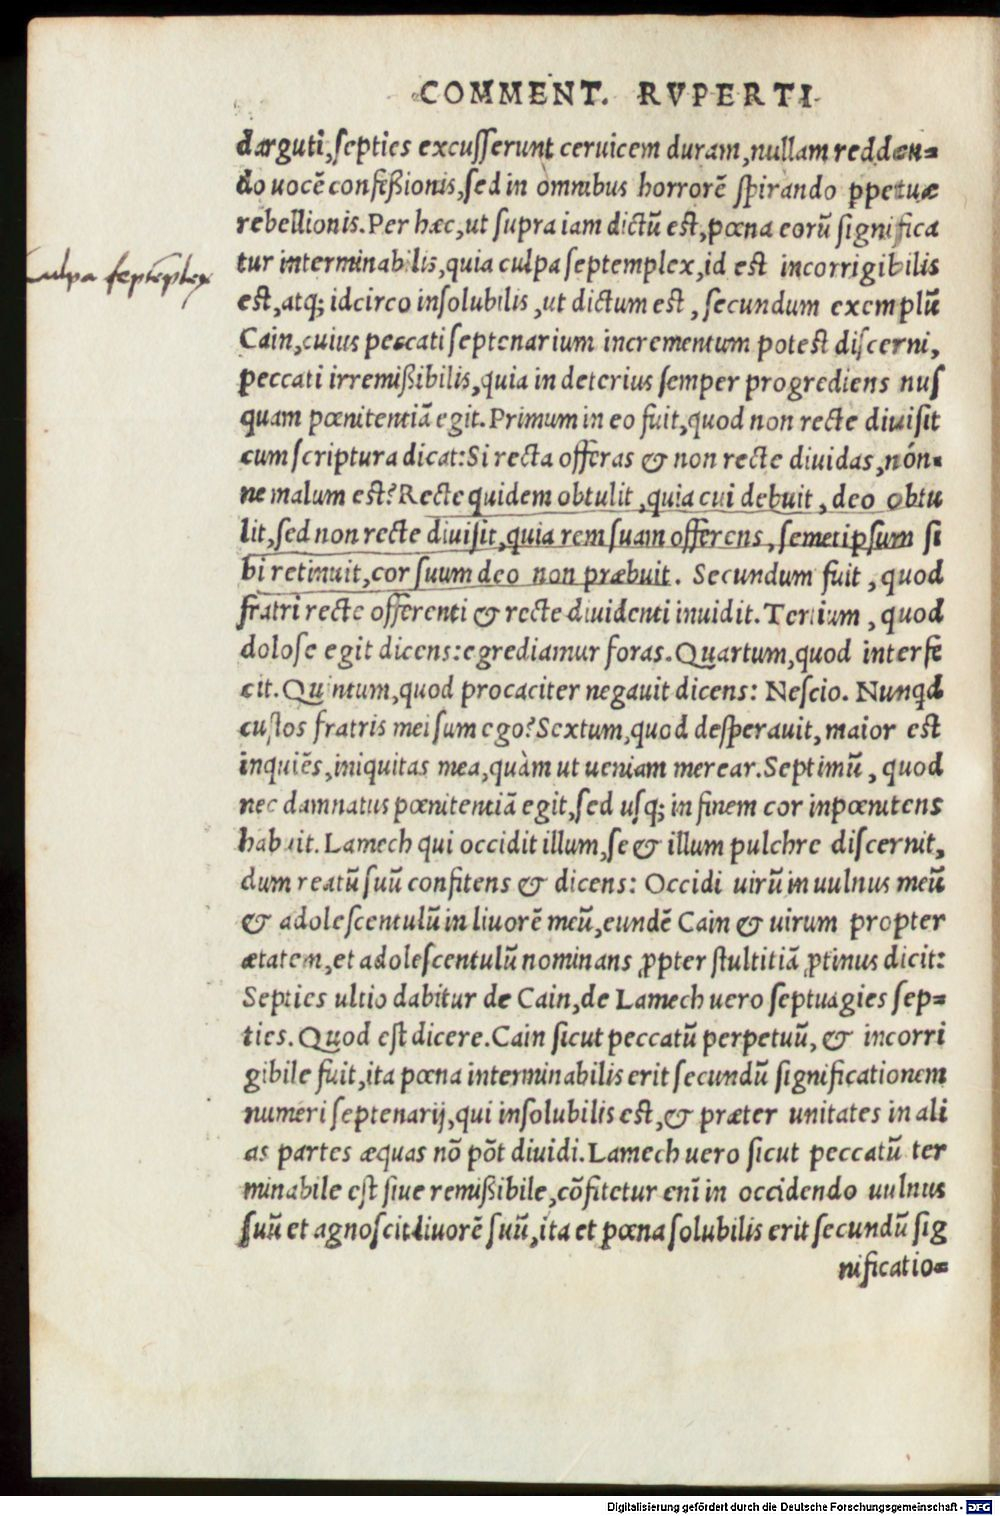 COMMENT. RVPERTI
darguti, septies excusserunt ceruicem duram, nullam redden-
do uocē confeßionis, sed in omnibus horrorē spirando ꝑpetuæ
rebellionis. Per hæc, ut supra iam dictū est, pœna eorū significa
tur interminabilis, quia culpa septemplex, id est incorrigibilis
est, atq; idcirco insolubilis, ut dictum est, secundum exemplū
Cain, cuius peccati septenarium incrementum potest discerni,
peccati irremißibilis, quia in deterius semper progrediens nus
quam pœnitentiā egit. Primum in eo fuit, quod non recte diuisit
cum scriptura dicat: Si recta offeras & non recte diuidas, nón-
ne malum est? Recte quidem obtulit, quia cui debuit, deo obtu
lit, sed non recte diuisit, quia rem suam offerens, semetipsum si
bi retinuit, cor suum deo non præbuit. Secundum fuit, quod
fratri recte offerenti & recte diuidenti inuidit. Tertium, quod
dolose egit dicens: egrediamur foras. Quartum, quod interfe
cit. Quintum, quod procaciter negauit dicens: Nescio. Nunqd
custos fratris mei sum ego? Sextum, quod desperauit, maior est
inquiēs, iniquitas mea, quàm ut ueniam merear. Septimū, quod
nec damnatus pœnitentiā egit, sed usq; in finem cor inpœnitens
habuit. Lamech qui occidit illum, se & illum pulchre discernit,
dum reatū suū confitens & dicens: Occidi uirū in uulnus meū
& adolescentulū in liuorē meū, eundē Cain & uirum propter
ætatem, et adolescentulū nominans ꝓpter stultitiā ꝓtinus dicit:
Septies ultio dabitur de Cain, de Lamech uero septuagies sep-
ties. Quod est dicere. Cain sicut peccatū perpetuū, & incorri
gibile fuit, ita pœna interminabilis erit secundū significationem
numeri septenarij, qui insolubilis est, & præter unitates in ali
as partes æquas nō pōt diuidi. Lamech uero sicut peccatū ter
minabile est siue remißibile, cōfitetur enī in occidendo uulnus
suū et agnoscit liuorē suū, ita et pœna solubilis erit secundū sig
nificatio-
culpa septēplex
Digitalisierung gefördert durch die Deutsche Forschungsgemeinschaft - DFG